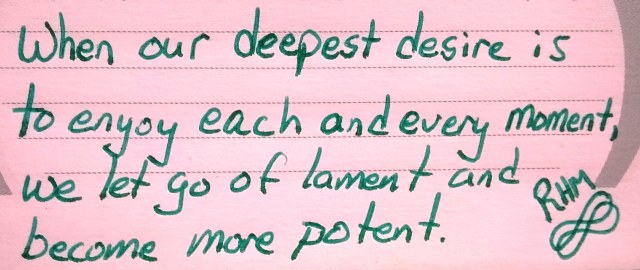 When our deepest desire is
to enyoy each and every moment,
we let go of lament and
become more potent.
RHM